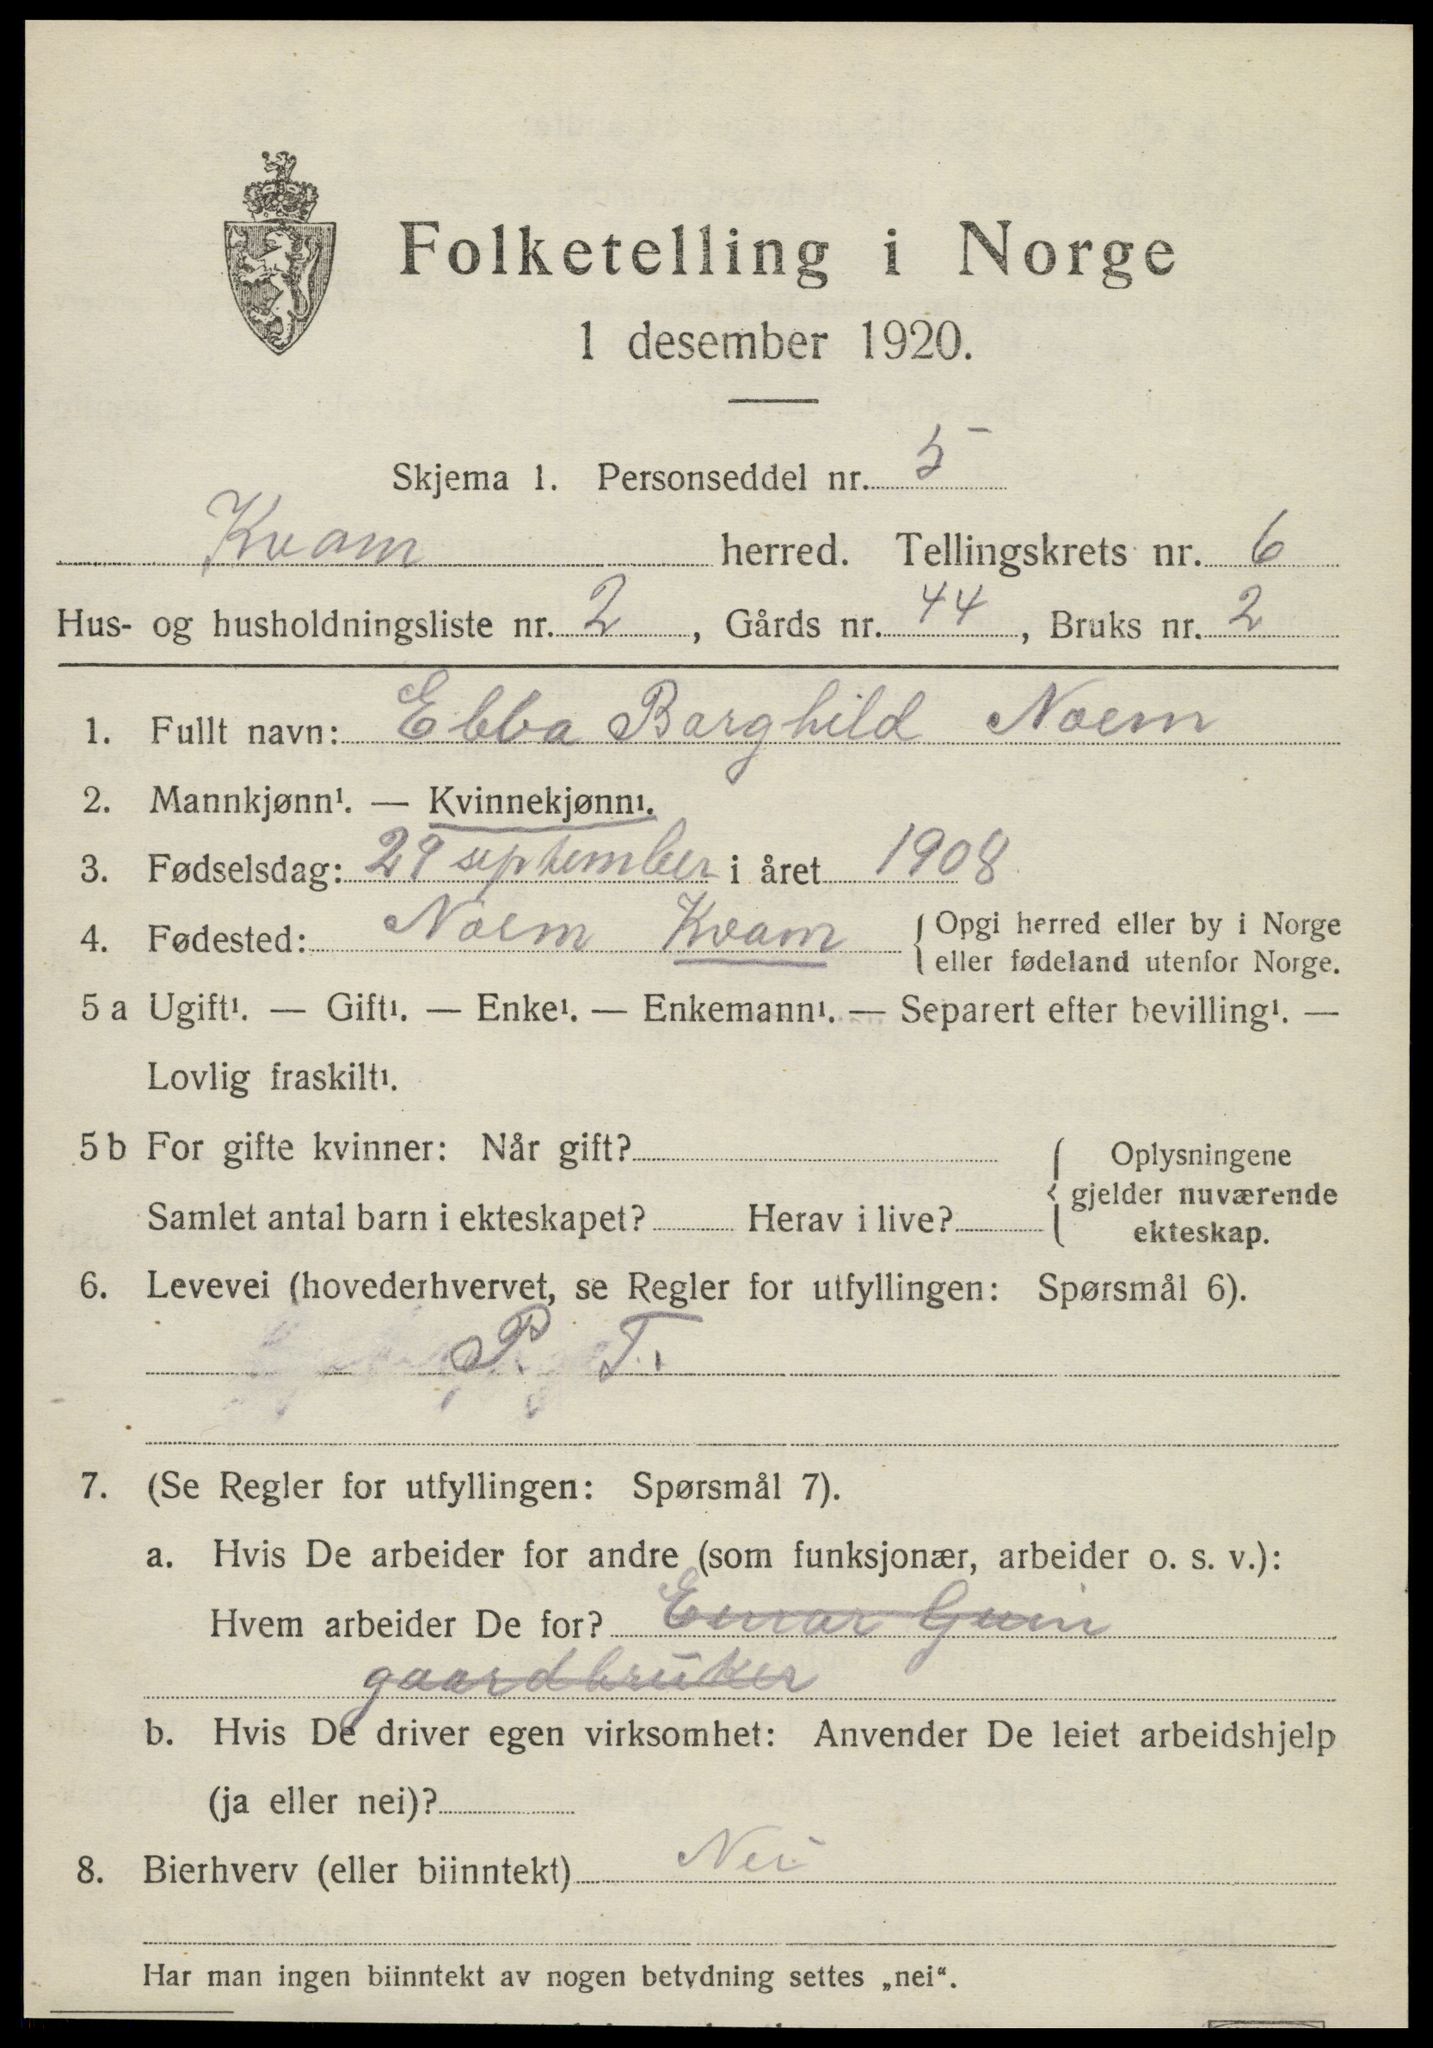 Folketelling i Norge
1 desember 1920.
Skjema 1. Personseddel nr. 5
Kvam herred. Tellingskrets nr. 6
Hus- og husholdningsliste nr. 2, Gårds nr. 44, Bruks nr. 2
1. Fullt navn: Ebba Borghild Noem
2. Mannkjønn¹. — Kvinnekjønn¹.
3. Fødselsdag: 29 september i året 1908
4. Fødested: Noem Kvam { Opgi herred eller by i Norge
eller fødeland utenfor Norge.
5 a Ugift¹. — Gift¹. — Enke¹. — Enkemann¹. — Separert efter bevilling¹. —
Lovlig fraskilt¹.
5 b For gifte kvinner: Når gift? { Oplysningene
gjelder nuværende
Samlet antal barn i ekteskapet? Herav i live? ekteskap.
6. Levevei (hovederhvervet, se Regler for utfyllingen: Spørsmål 6).
P. T.
7. (Se Regler for utfyllingen: Spørsmål 7).
a. Hvis De arbeider for andre (som funksjonær, arbeider o. s. v.):
Hvem arbeider De for? Einar
gaardbruker
b. Hvis De driver egen virksomhet: Anvender De leiet arbeidshjelp
(ja eller nei)?
8. Bierhverv (eller biinntekt) Nei
Har man ingen biinntekt av nogen betydning settes „nei“.